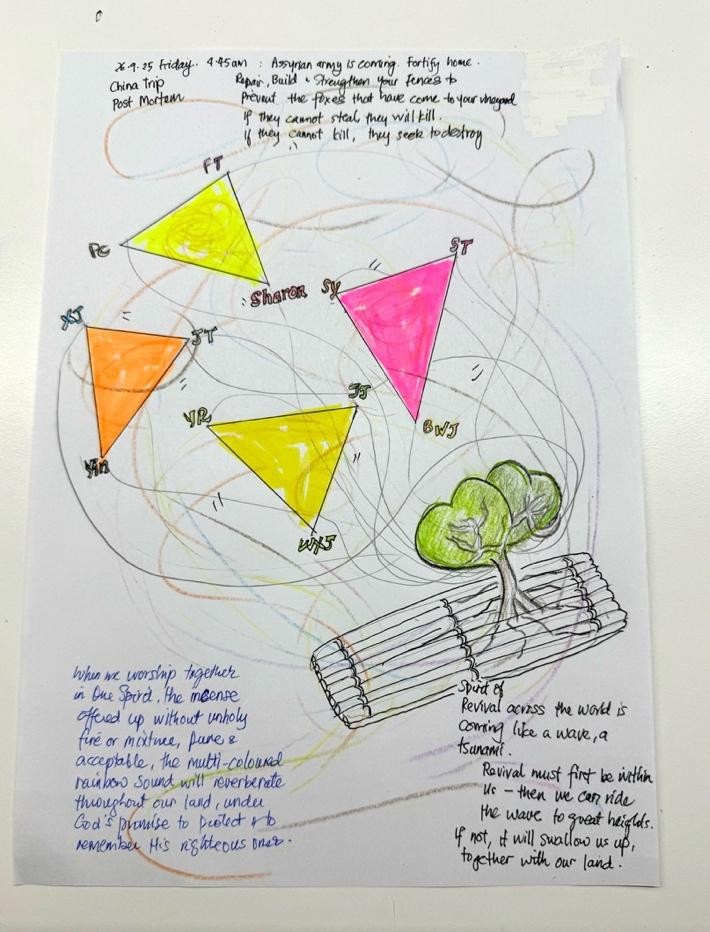 26.9.25 Friday. 4.45am : Assyrian army is coming. Fortify home.
China trip
Post Mortem
Repair, Build & Strengthen your fences to
prevent the foxes that have come to your vineyard
If they cannot steal, they will kill.
If they cannot kill, they seek to destroy
FT
PC
Sharon
SY
ST
BWJ
XJ
JT
Yin
YR
JJ
WXJ
When we worship together
in One Spirit, the incense
offered up without unholy
fire or mixture, pure &
acceptable, the multi-coloured
rainbow sound will reverberate
throughout our land, under
God's promise to protect & to
remember His righteous ones.
Spirit of
Revival across the world is
coming like a wave, a
tsunami.
Revival must first be within
us – then we can ride
the wave to great heights.
If not, it will swallow us up,
together with our land.